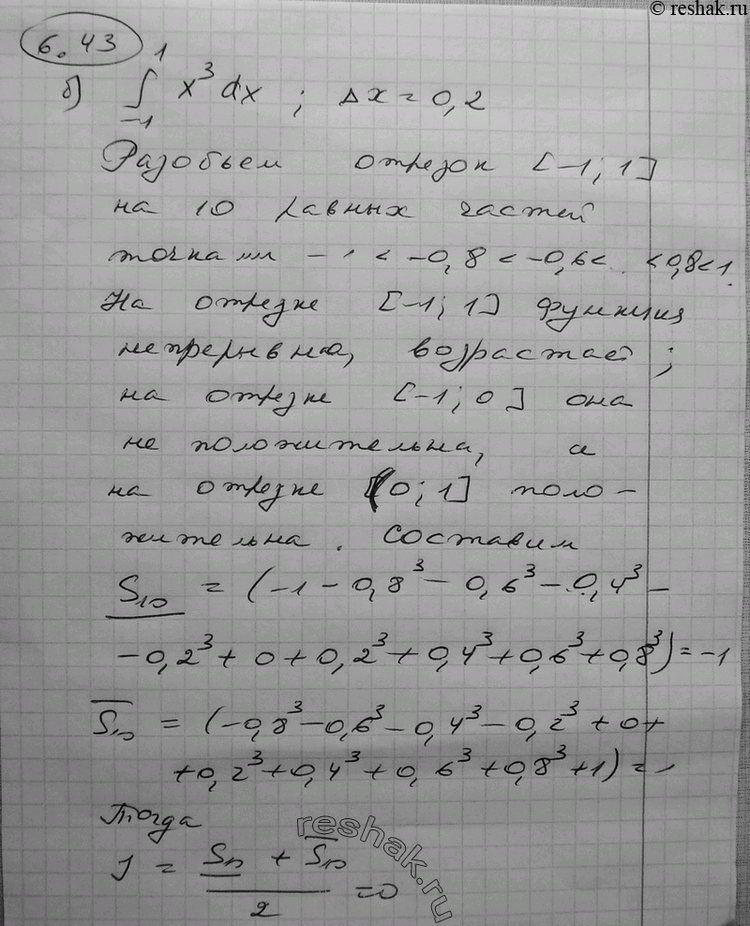 © reshak.ru
6.43
б) ∫₋₁¹ x³ dx ; Δx = 0,2
Разобьем отрезок [-1; 1]
на 10 равных частей
точками -1 < -0,8 < -0,6 < .. < 0,8 < 1.
На отрезке [-1; 1] функция
непрерывна, возрастает;
на отрезке [-1; 0] она
не положительна, а
на отрезке [0; 1] поло-
жительна. Составим
S₁₀ = (-1 - 0,8³ - 0,6³ - 0,4³ -
-0,2³ + 0 + 0,2³ + 0,4³ + 0,6³ + 0,8³) = -1
S₁₀ = (-0,8³ - 0,6³ - 0,4³ - 0,2³ + 0 +
+0,2³ + 0,4³ + 0,6³ + 0,8³ + 1) = 1
Тогда
J = (S₁₀ + S₁₀) / 2 = 0
reshak.ru